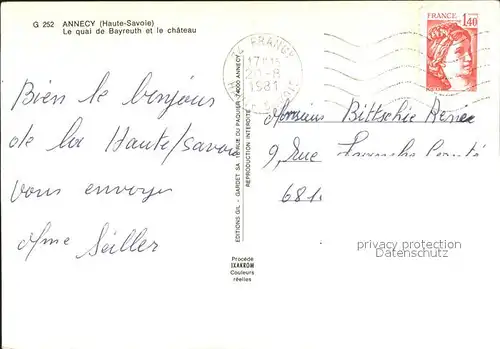 G 252 ANNECY (Haute-Savoie)
Le quai de Bayreuth et le château
FRANCE
1,40
17H15
20-8
1981
Bien le bonjour
de la Haute/savoie
vous envoye
Mme Seiller
EDITIONS GIL - GARDET SA RUE DU PAQUIER 74000 ANNECY
REPRODUCTION INTERDITE
Procédé
IXAKROM
Couleurs
réelles
Monsieur Bittschie Renée
9, Rue
681
privacy protection
Datenschutz